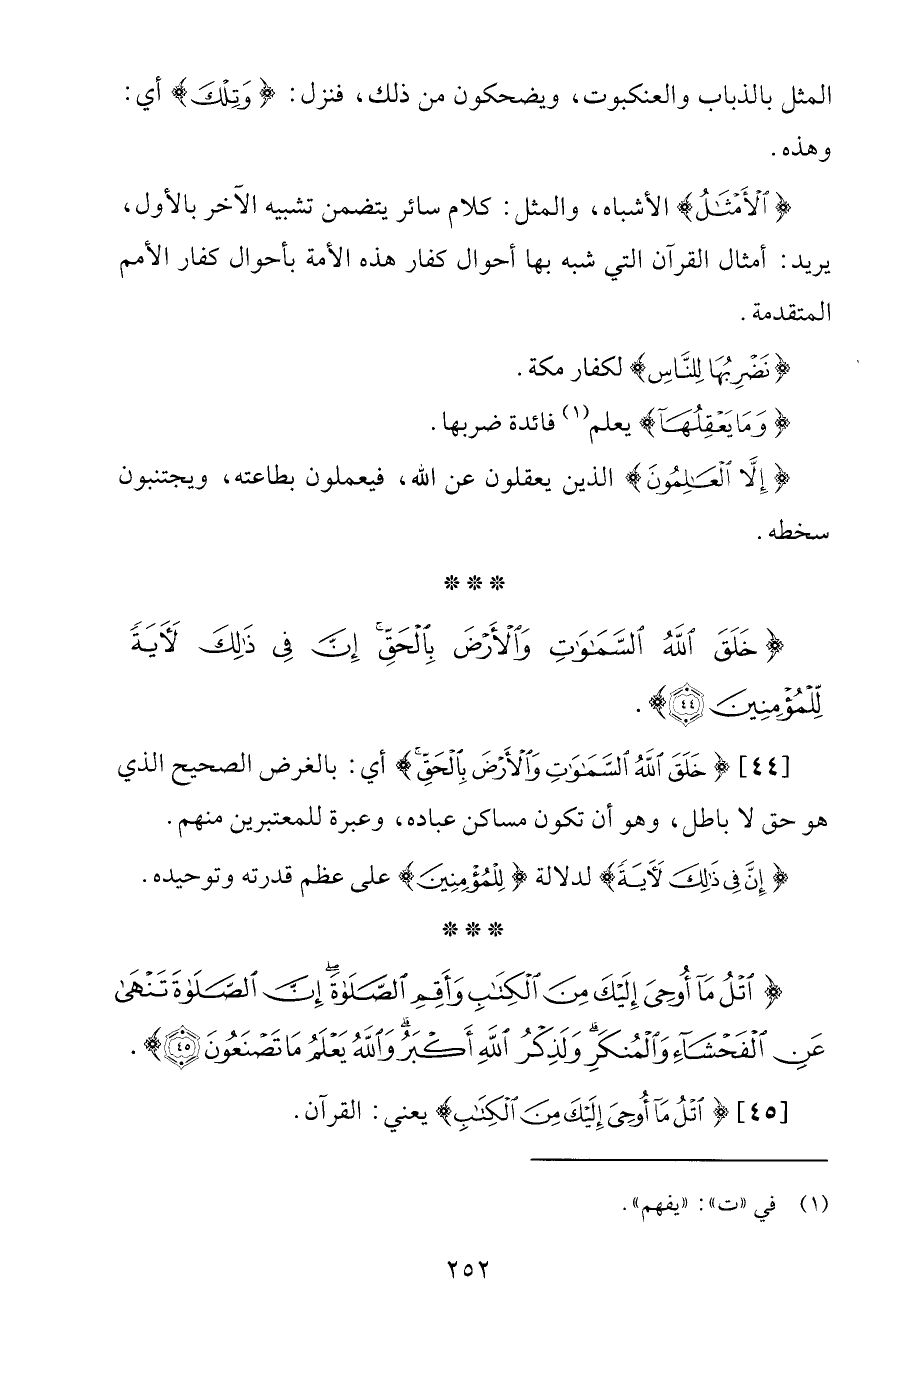 المثل بالذباب والعنكبوت، ويضحكون من ذلك، فنزل: ﴿وَتِلْكَ﴾ أي:
وهذه.
﴿ٱلْأَمْثَٰلُ﴾ الأشباه، والمثل: كلام سائر يتضمن تشبيه الآخر بالأول،
يريد: أمثال القرآن التي شبه بها أحوال كفار هذه الأمة بأحوال كفار الأمم
المتقدمة.
﴿نَضْرِبُهَا لِلنَّاسِ﴾ لكفار مكة.
﴿وَمَا يَعْقِلُهَآ﴾ يعلم(١) فائدة ضربها.
﴿إِلَّا ٱلْعَٰلِمُونَ﴾ الذين يعقلون عن الله، فيعملون بطاعته، ويجتنبون
سخطه.
***
﴿خَلَقَ ٱللَّهُ ٱلسَّمَٰوَٰتِ وَٱلْأَرْضَ بِٱلْحَقِّ ۚ إِنَّ فِى ذَٰلِكَ لَـَٔايَةً
لِّلْمُؤْمِنِينَ ٤٤﴾.
[٤٤] ﴿خَلَقَ ٱللَّهُ ٱلسَّمَٰوَٰتِ وَٱلْأَرْضَ بِٱلْحَقِّ ۚ﴾ أي: بالغرض الصحيح الذي
هو حق لا باطل، وهو أن تكون مساكن عباده، وعبرة للمعتبرين منهم.
﴿إِنَّ فِى ذَٰلِكَ لَـَٔايَةً﴾ لدلالة ﴿لِلْمُؤْمِنِينَ﴾ على عظم قدرته وتوحيده.
***
﴿ٱتْلُ مَآ أُوحِىَ إِلَيْكَ مِنَ ٱلْكِتَٰبِ وَأَقِمِ ٱلصَّلَوٰةَ ۖ إِنَّ ٱلصَّلَوٰةَ تَنْهَىٰ
عَنِ ٱلْفَحْشَآءِ وَٱلْمُنكَرِ ۗ وَلَذِكْرُ ٱللَّهِ أَكْبَرُ ۗ وَٱللَّهُ يَعْلَمُ مَا تَصْنَعُونَ ٤٥﴾.
[٤٥] ﴿ٱتْلُ مَآ أُوحِىَ إِلَيْكَ مِنَ ٱلْكِتَٰبِ﴾ يعني: القرآن.
(١) في «ت»: «يفهم».
٢٥٢